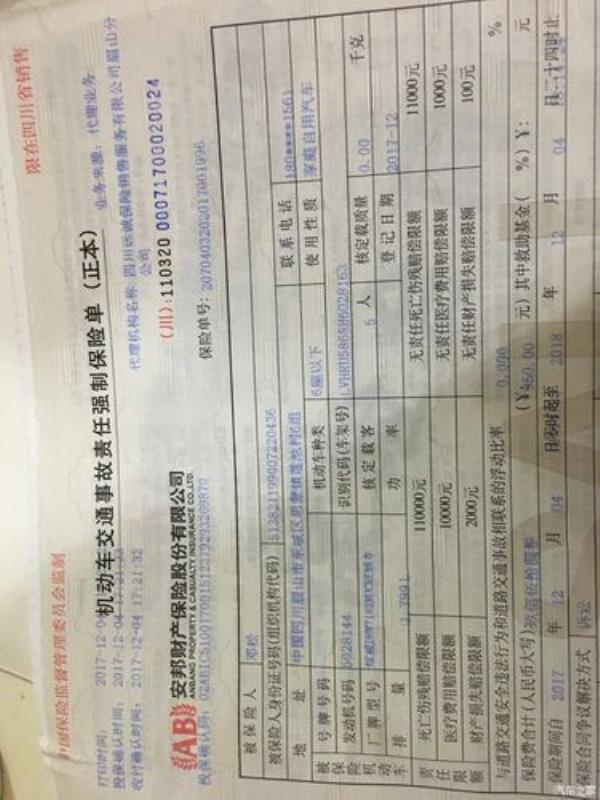 中国保险监督管理委员会监制
限在四川省销售
机动车交通事故责任强制保险单（正本）
打印时间： 2017-12-04
投保确认时间： 2017-12-04 17:21:32
收付确认时间： 2017-12-04 17:21:32
业务来源：代理业务
代理机构名称：四川远诚保险销售服务有限公司眉山分公司
AB 安邦财产保险股份有限公司
ANBANG PROPERTY & CASUALTY INSURANCE CO.,LTD.
(川)：110320 000717000020024
投保确认码：
保险单号：
被保险人 邓松
被保险人身份证号码(组织机构代码)
地 址 联系电话 180****1561
被保险机动车
号牌号码 机动车种类 6座以下 使用性质 家庭自用汽车
发动机号码 识别代码(车架号)
厂牌型号 核定载客 5 人 核定载质量 0.00 千克
排 量 功 率 登记日期 2017-12
责任限额
死亡伤残赔偿限额 110000元 无责任死亡伤残赔偿限额 11000元
医疗费用赔偿限额 10000元 无责任医疗费用赔偿限额 1000元
财产损失赔偿限额 2000元 无责任财产损失赔偿限额 100元
与道路交通安全违法行为和道路交通事故相联系的浮动比率 0.000 %
保险费合计(人民币大写) (¥: 元) 其中救助基金( %) ¥: 元
保险期间自 2017 年 12 月 04 日 时起至 2018 年 12 月 04 日二十四时止
保险合同争议解决方式 诉讼
汽车之家